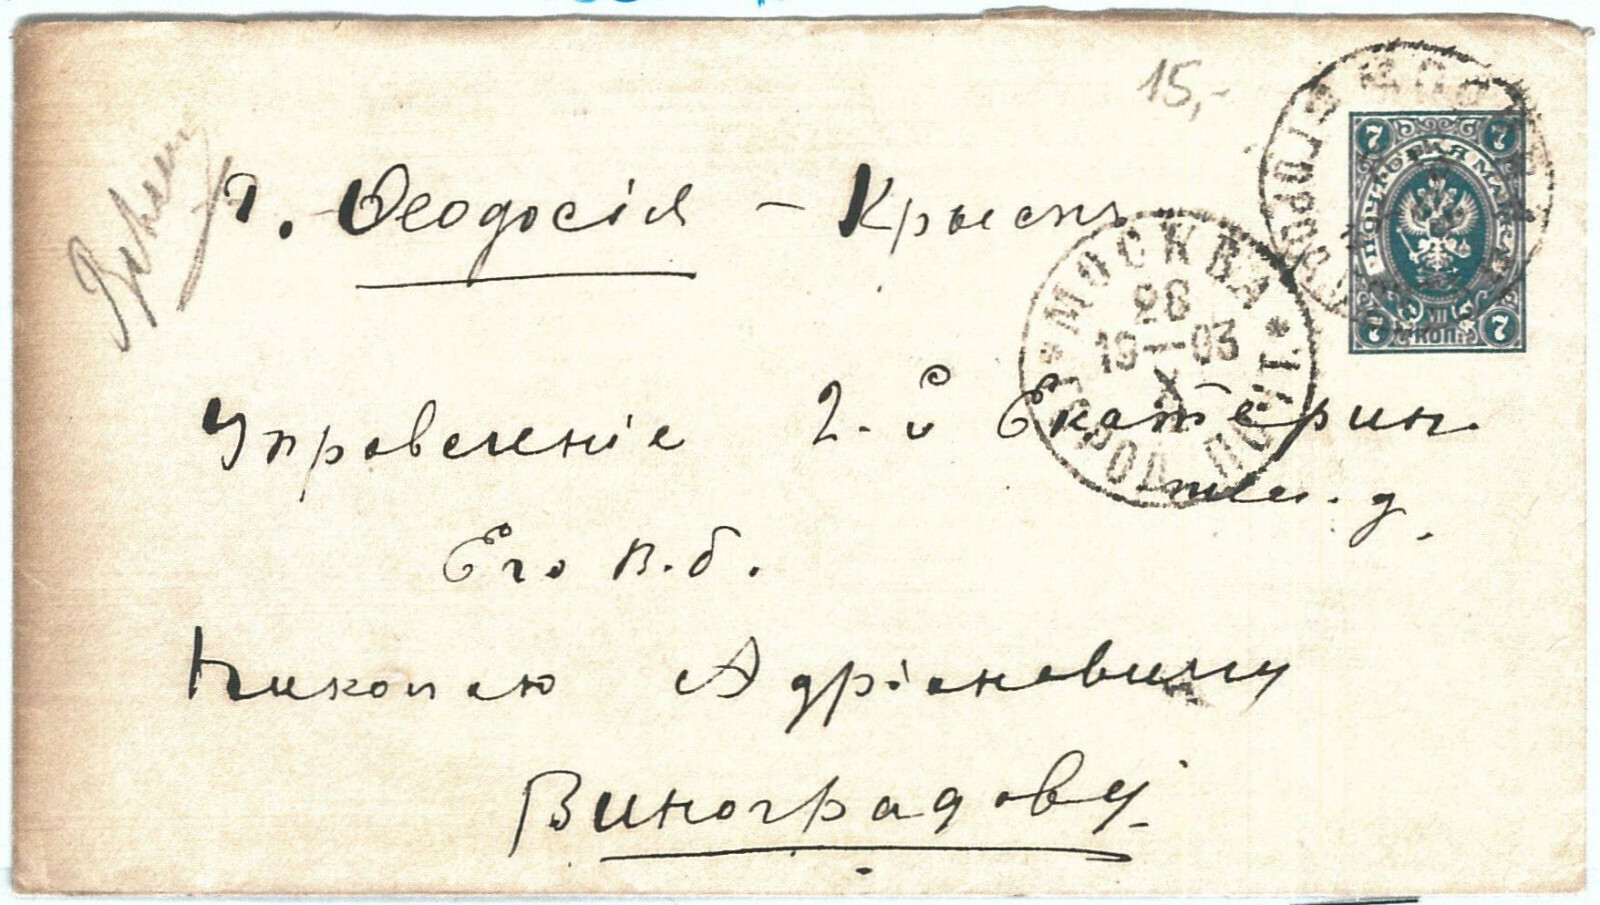 15,-
г. Ѳеодосія - Крымъ
Управленіе 2-й Екатерин.
жел. д.
Его В. б.
Николаю Адріановичу
Виноградову
МОСКВА
28
19-03
X
ГОРОД. ПОЧТ.
ПОЧТОВАЯ МАРКА
7 7
7 КОП. 7